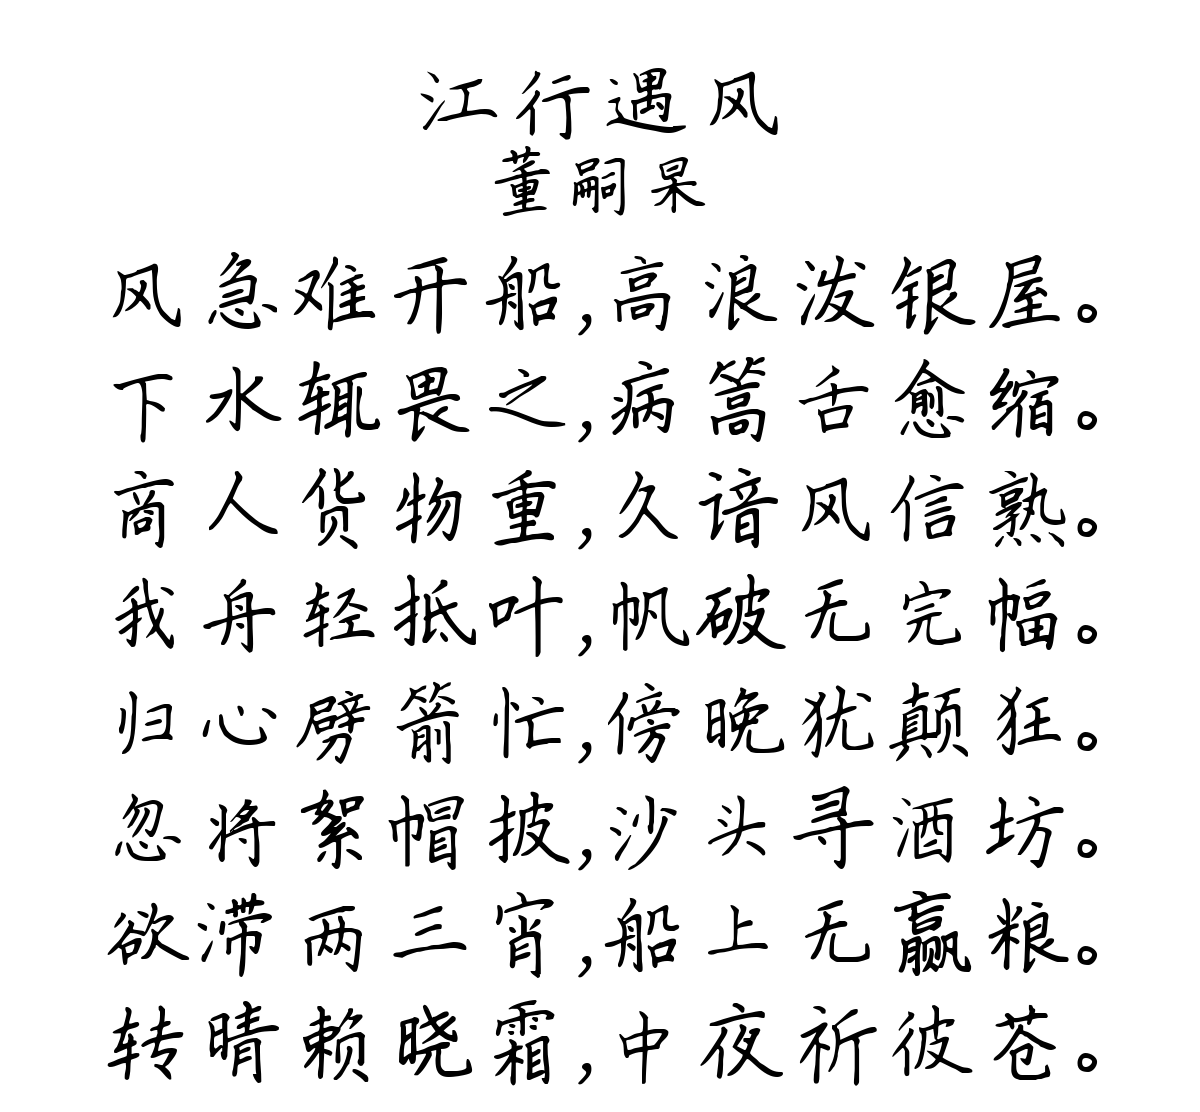 江行遇风
董嗣杲
风急难开船,高浪泼银屋。
下水辄畏之,病篙舌愈缩。
商人货物重,久谙风信熟。
我舟轻抵叶,帆破无完幅。
归心劈箭忙,傍晚犹颠狂。
忽将絮帽披,沙头寻酒坊。
欲滞两三宵,船上无赢粮。
转晴赖晓霜,中夜祈彼苍。